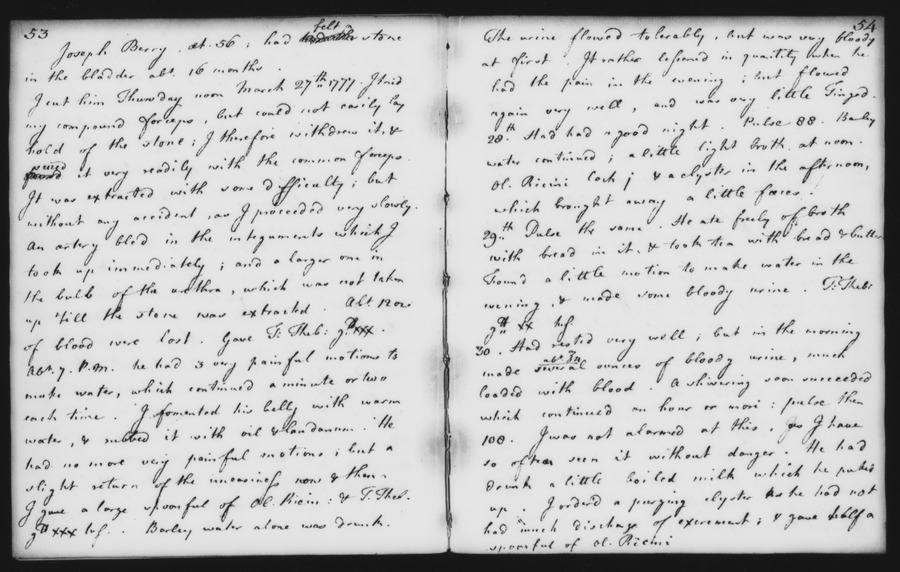 53
Joseph Berry. æt. 56; had felt a stone
in the bladder abt. 16 months.
I cut him Thursday noon March 27th 1777. I tried
my compound forceps, but could not easily lay
hold of the stone; I therefore withdrew it, &
seized it very readily with the common forceps.
It was extracted with some difficulty; but
without any accident, as I proceeded very slowly.
An artery bled in the integuments which I
took up immediately; and a larger one in
the bulb of the urethra, which was not taken
up 'till the stone was extracted. Abt 12 oz
of blood were lost. Gave T. Theb: gtt xxx.
Abt. 7. P.M. he had 3 very painful motions to
make water, which continued a minute or two
each time. I fomented his belly with warm
water, & rubbed it with oil & laudanum. He
had no more very painful motions; but a
slight return of the uneasiness now & then.
I gave a large spoonful of Ol. Ricin: & T. Theb.
gtt xxx hs. Barley water alone was drunk.
54
The urine flowed tolerably, but was very bloody
at first. It rather lessened in quantity when he
had the pain in the evening; but flowed
again very well, and was very little Tinged.
28th. Had had a good night. Pulse 88. Barley
water continued; a little light broth at noon.
Ol. Ricini coch j & a clyster in the afternoon,
which brought away a little fæces.
29th. Pulse the same. He ate freely of broth
with bread in it, & took tea with bread & butter.
Found a little motion to make water in the
evening, & made some bloody urine. T. Theb:
gtt xx hs.
30. Had rested very well; but in the morning
made abt. ounces of bloody urine, much
loaded with blood. A shivering soon succeeded
which continued an hour or more: pulse then
108. I was not alarmed at this, as I have
so often seen it without danger. He had
drunk a little boiled milk which he puked
up. I orderd a purging clyster as he had not
had much discharge of excrement; & gave half a
spoonful of Ol. Ricini